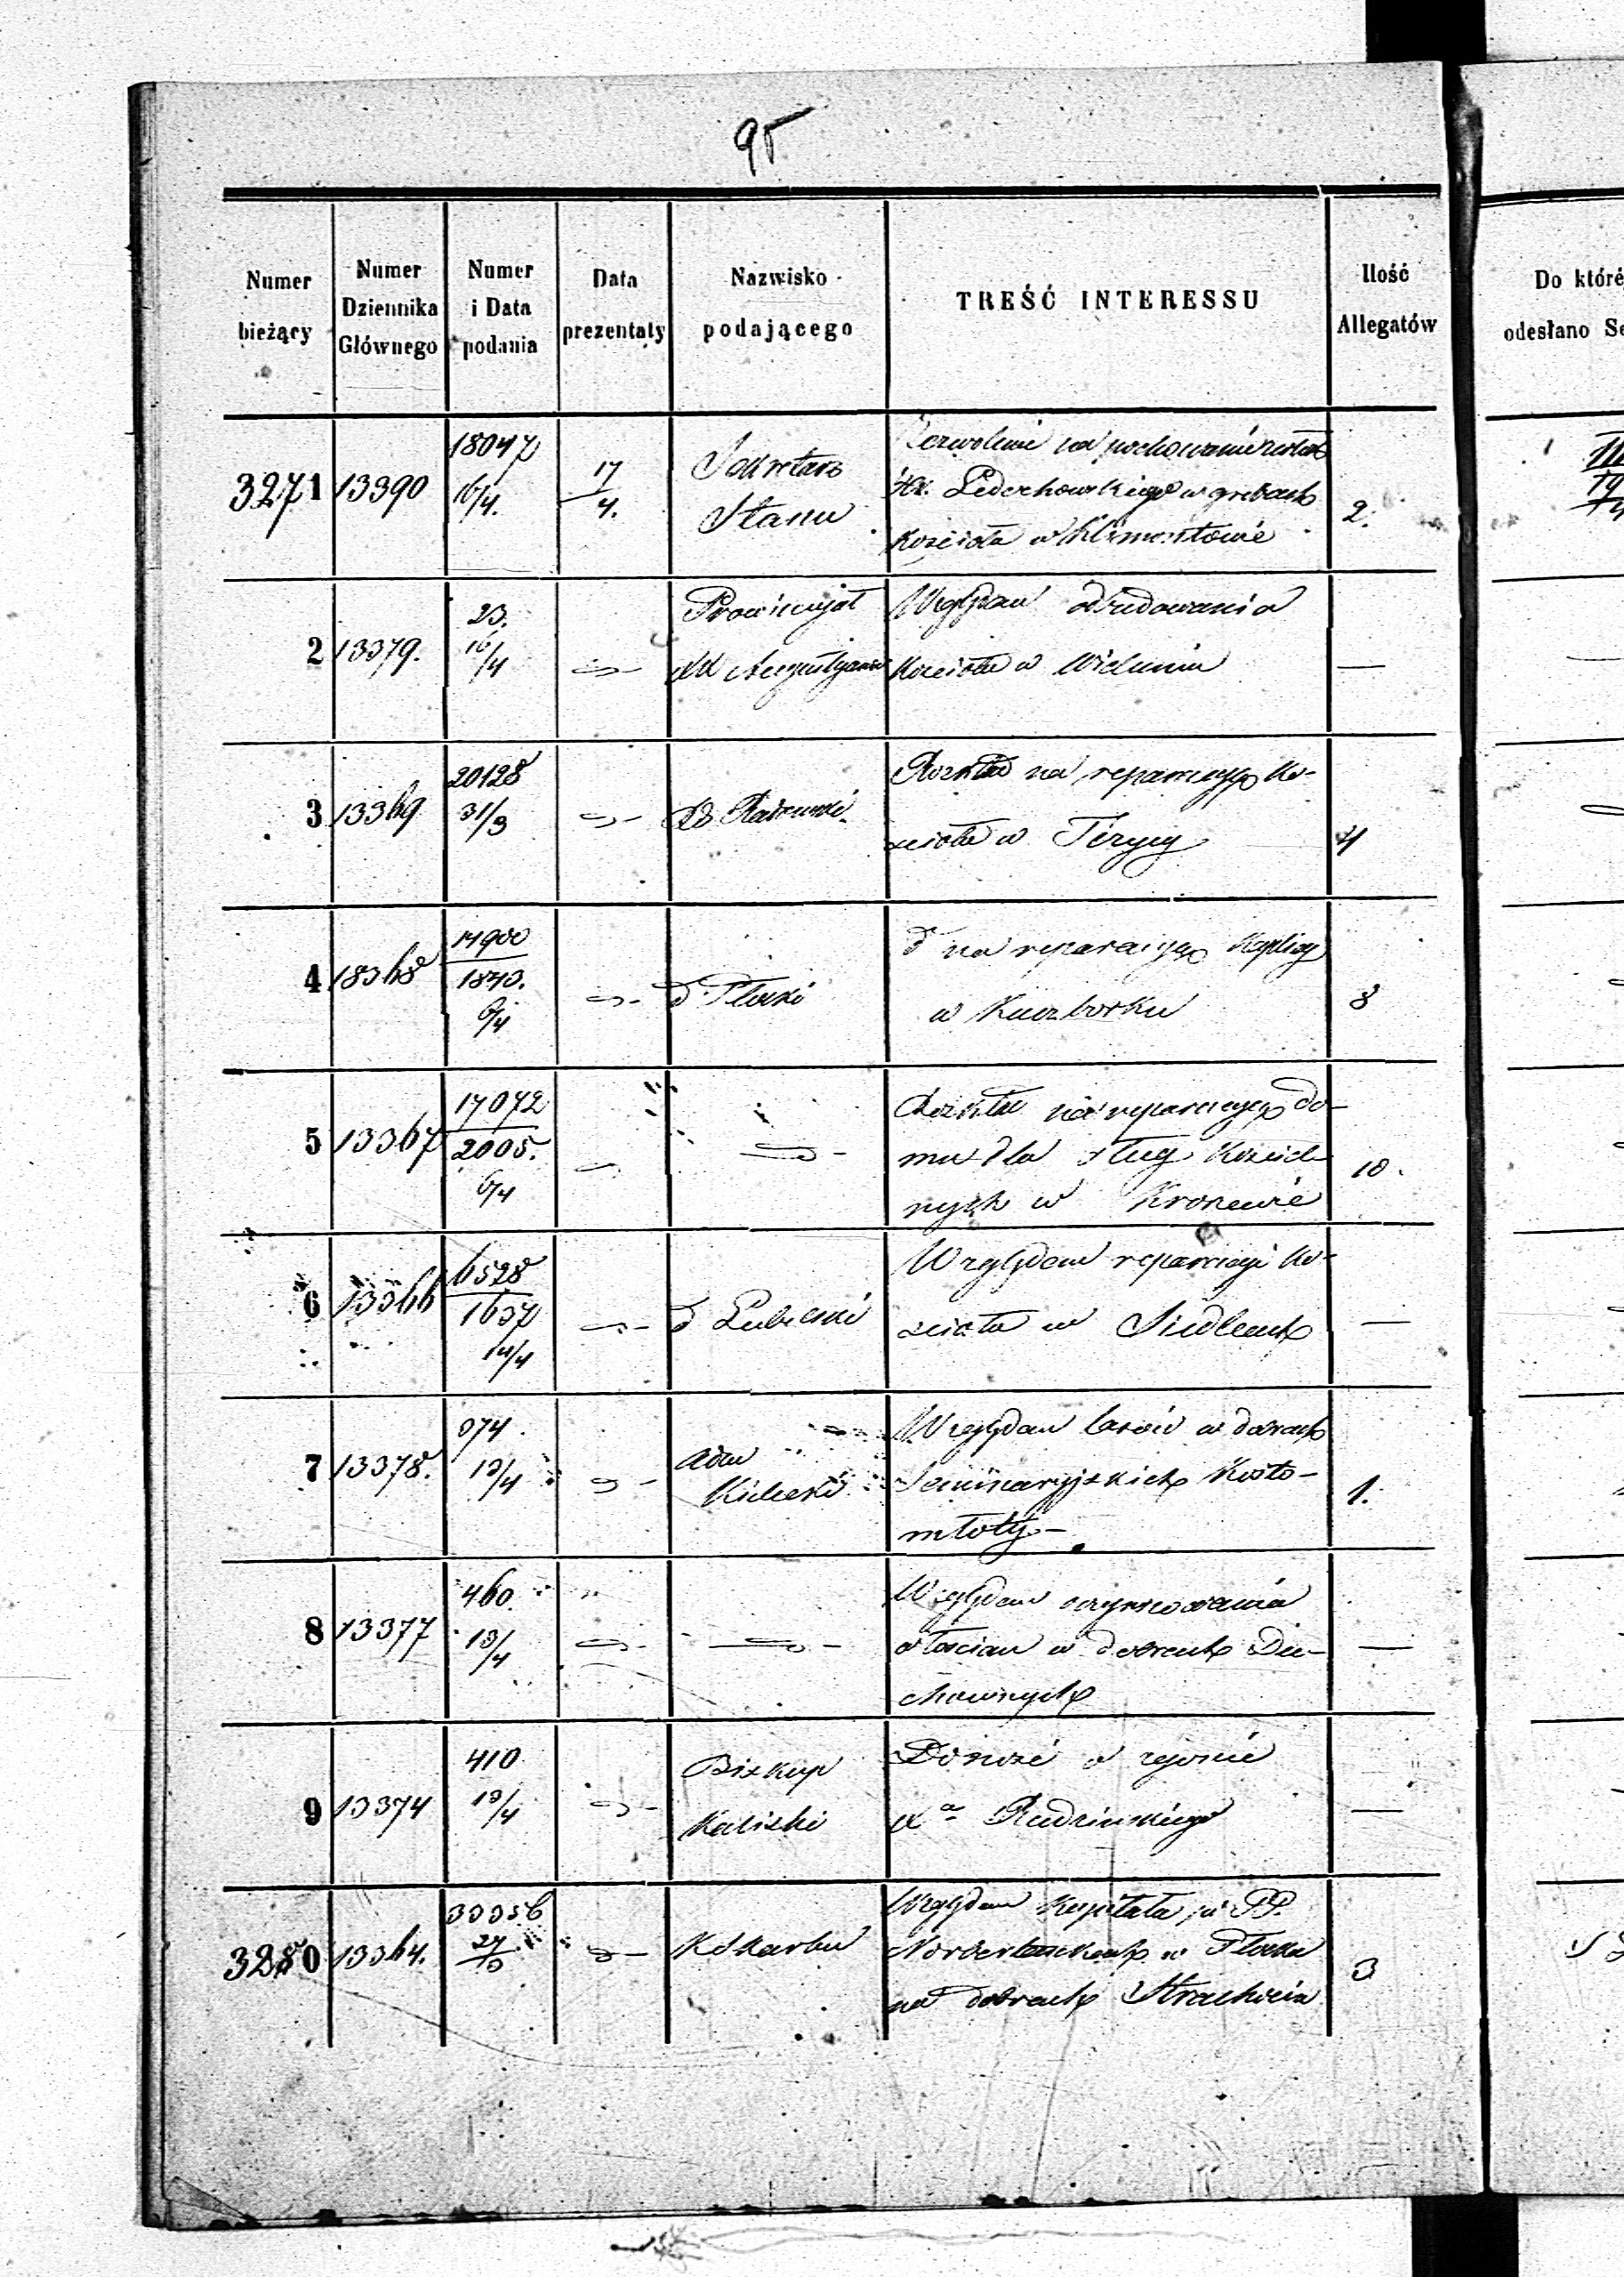 95
Numer bieżący
Numer Dziennika Głównego
Numer i Data podania
Data prezentaty
Nazwisko podającego
TREŚĆ INTERESSU
Ilość Allegatów
Do któré
odesłano Se
3271 13390 18047 16/4. 17/4. Sekretarz Stanu
Zezwolenie na pochowanie zwłok
Hr. Ledochowskiego w grobach
Kościoła w Klimontowie
2.
2 13379. 23. 16/4 Prowincyał Augustyanów
Względem odbudowania
Kościoła w Wieluniu
—
3 13369 20128 31/3 Radomski
na reparacyę Ko-
ścioła w
4
4 13368 14900 1840. 6/4 d Płocki
d na reparacyę Kaplicy
w Kuczborku
8
5 13367 17072 2005. 6/4
na reparacyę do-
mu dla sług Kościel-
nych w
10.
6 13366 6528 1637 14/4 d Lubelski
Względem reparacyi Ko-
ścioła w Siedlcach
—
7 13378. 374. 13/4 Adm Kielecki
Względem lasów w dobrach
Seminaryjskich Kosto-
młoty —
1.
8 13377 460. 13/4
Względem oczynszowania
włościan w dobrach Du-
chownych
—
9 13374 410 13/4 Biskup Kaliski
Donosi o zgonie
Xa Rudzińskiego
—
3280 13364. 33356 27/3 K Skarbu
Względem Kapitału PP.
Norbertanek w Płocku
na dobrach Strachocin
3